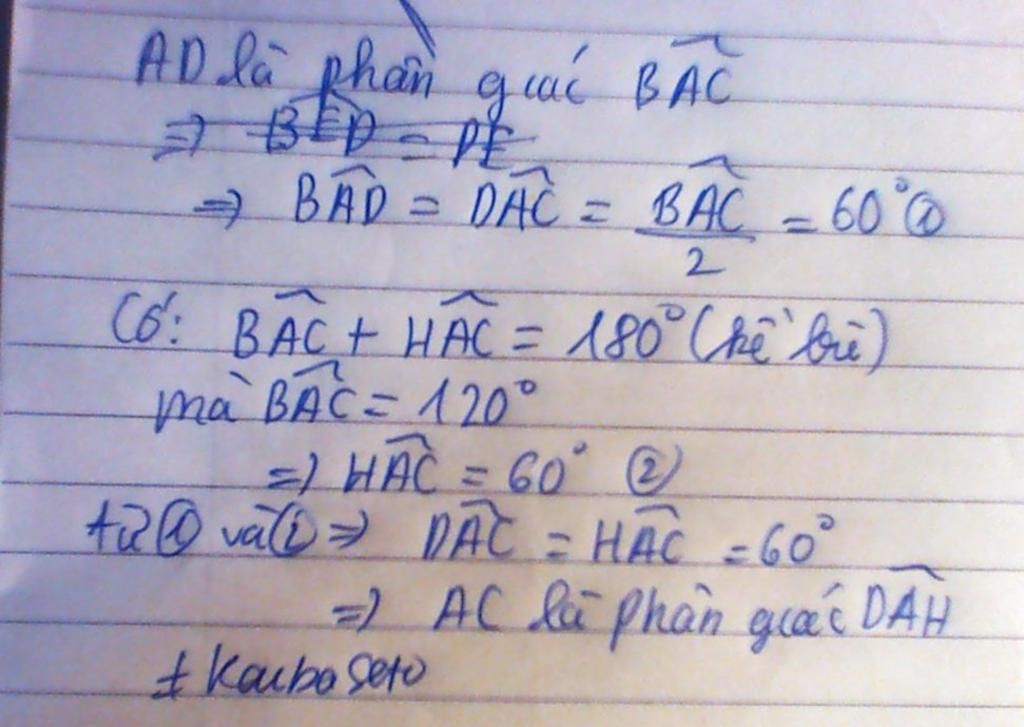 AD là phân giác BAC
⇒ BED = DE
⇒ BAD = DAC = BAC/2 = 60° ①
Có: BAC + HAC = 180° (kề bù)
mà BAC = 120°
⇒ HAC = 60° ②
từ ① và ② ⇒ DAC = HAC = 60°
⇒ AC là phân giác DAH